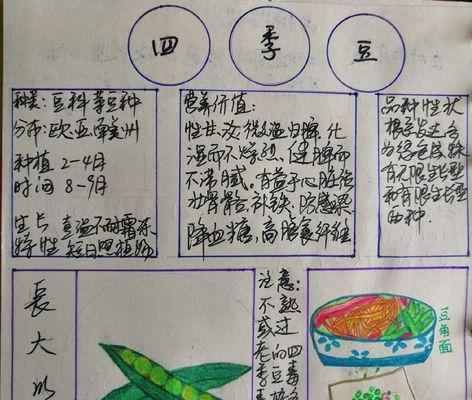 四 季 豆
种类：豆科菜豆种
分布：欧亚南美州
种植 2-4月
时间 8-9月
生长 喜温不耐霜冻
特性 短日照植物
营养价值：
性甘淡微温归脾化
湿而不燥烈，健脾而
不滞腻。有益于心脏强
壮骨骼补铁，防感染
降血糖，高膳食纤维
品种性状
根系发达
为绿色皮
有无限生长型
和有限生长型
两种．
長
大
注意：
不熟
或过
老的四
季豆毒
豆角面